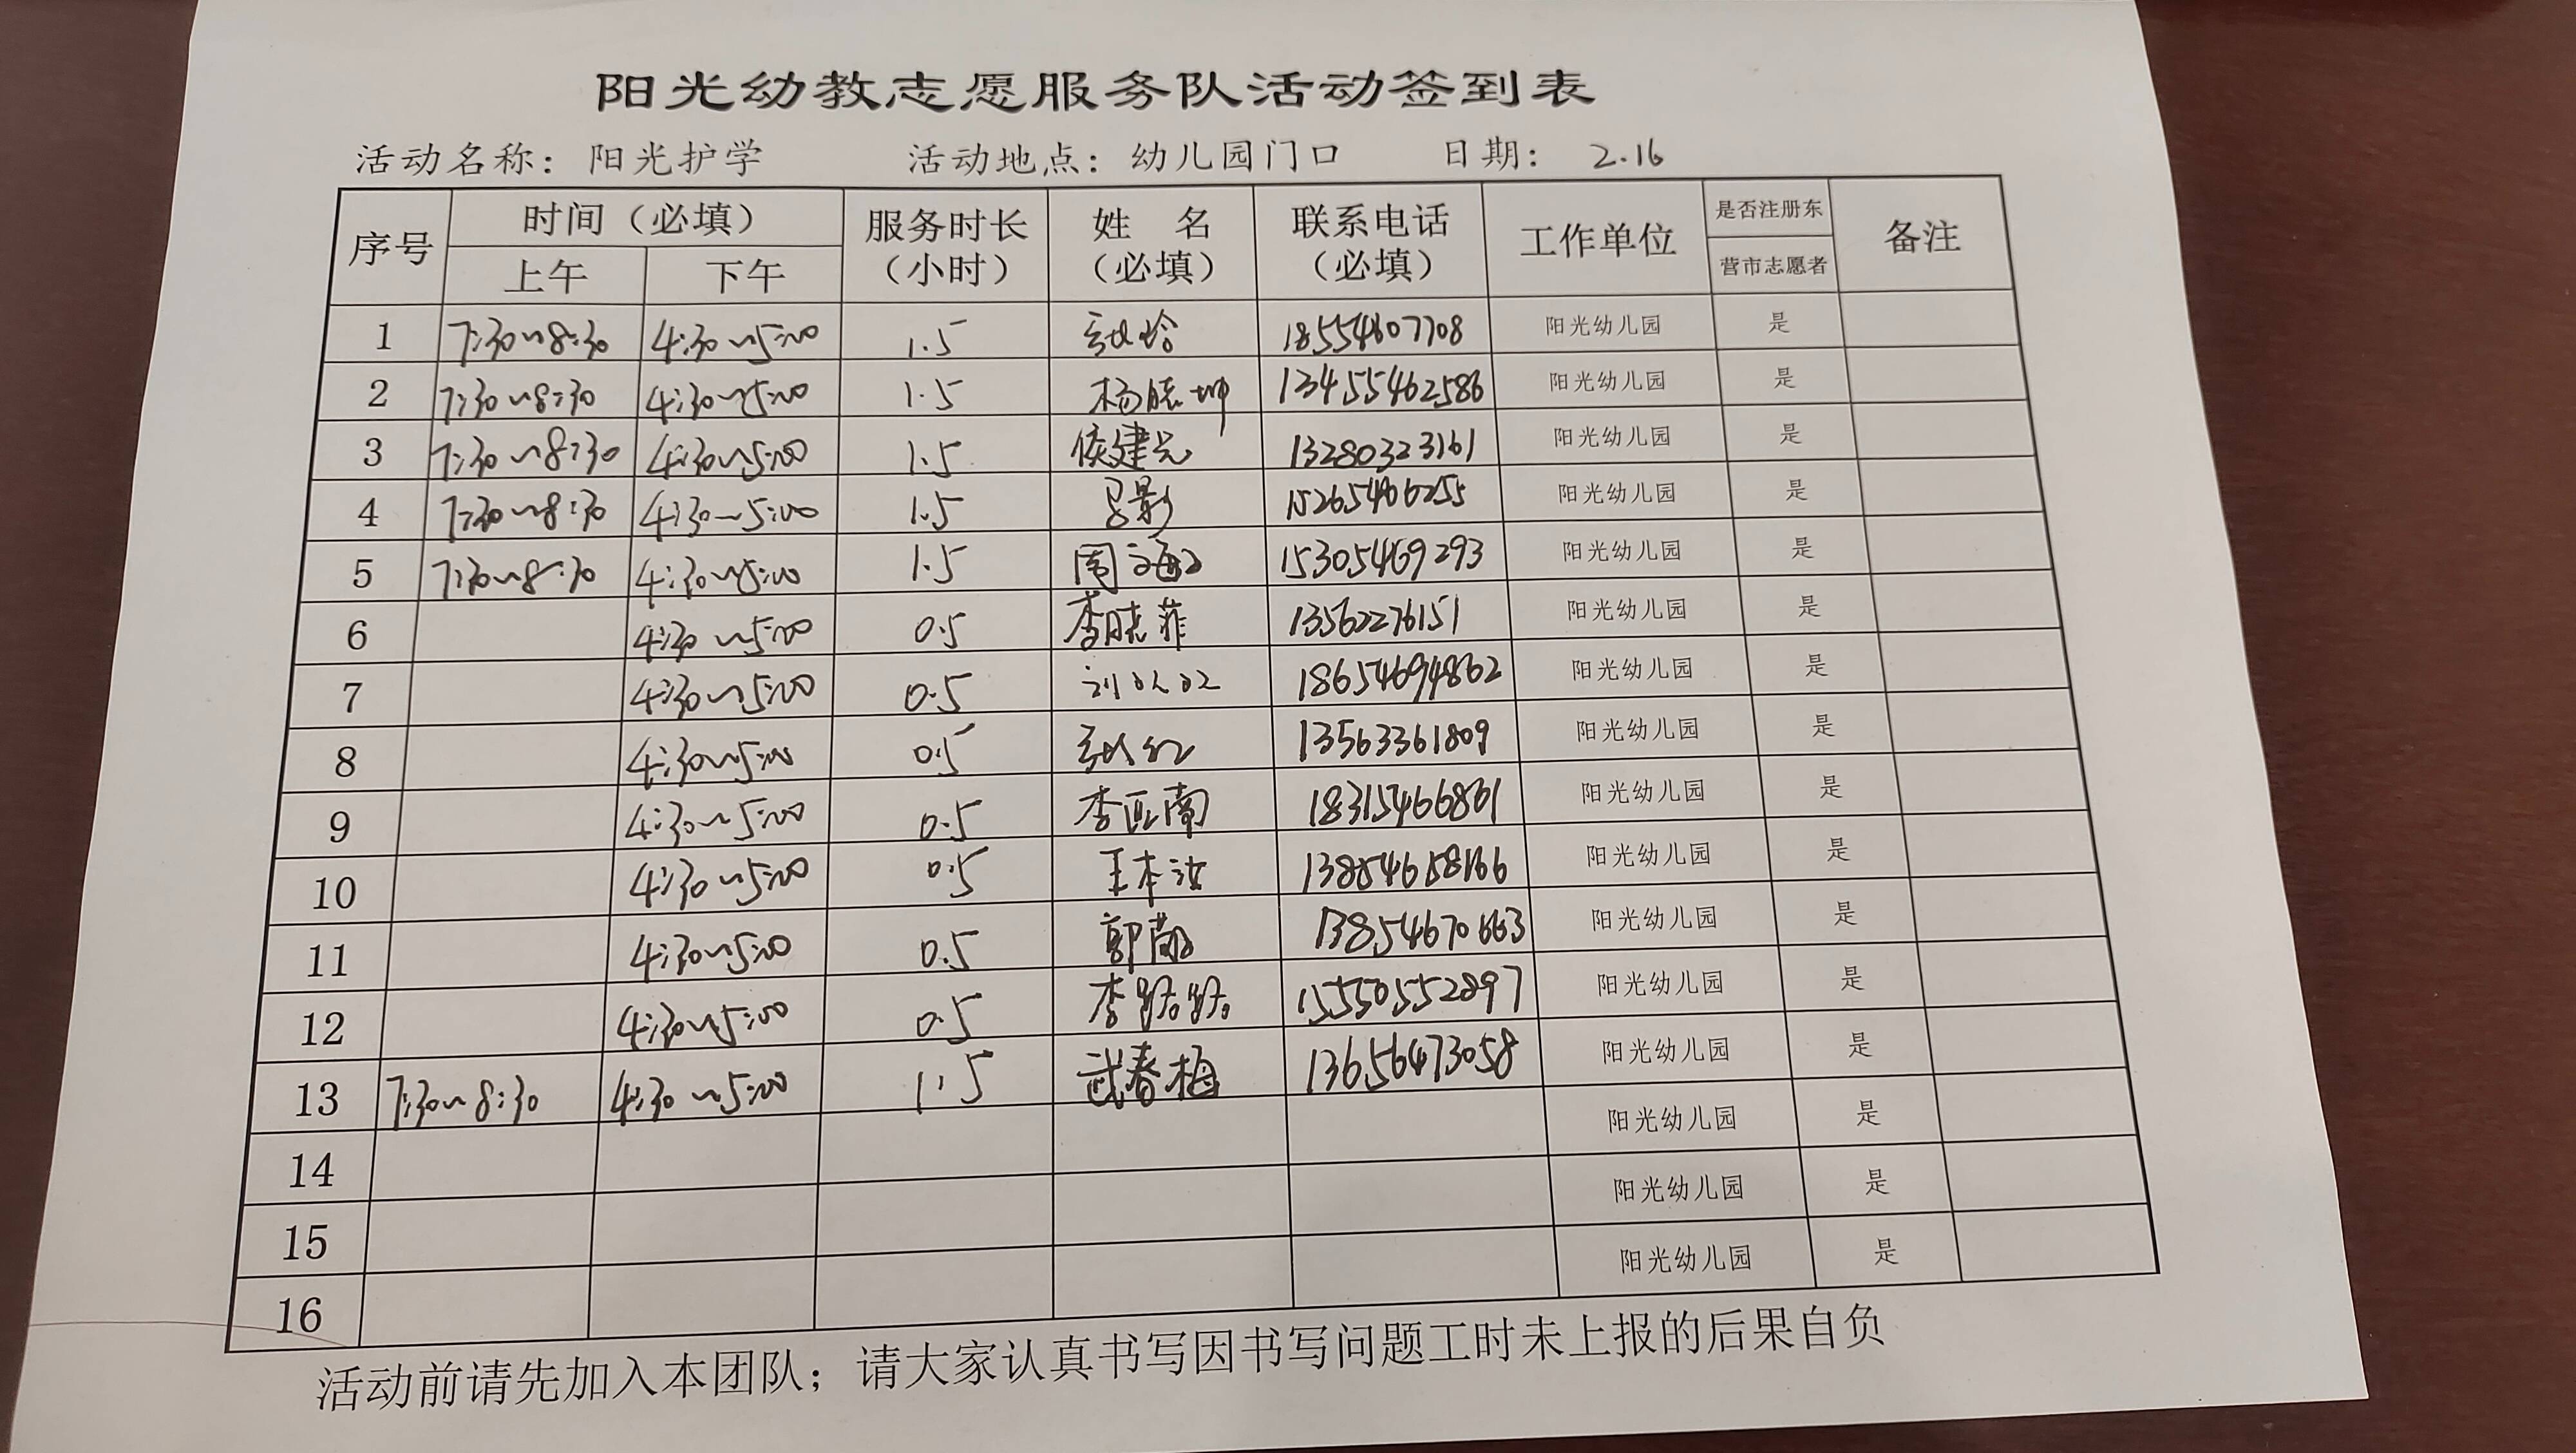 阳光幼教志愿服务队活动签到表
活动名称：阳光护学 活动地点：幼儿园门口 日期： 2.16
序号 时间（必填） 上午 下午 服务时长（小时） 姓 名（必填） 联系电话（必填） 工作单位 是否注册东营市志愿者 备注
1 7:30~8:30 4:30~5:00 1.5 张玲 18554607708 阳光幼儿园 是
2 7:30~8:30 4:30~5:00 1.5 杨晓坤 13455462586 阳光幼儿园 是
3 7:30~8:30 4:30~5:00 1.5 侯建元 13280323161 阳光幼儿园 是
4 7:30~8:30 4:30~5:00 1.5 15265466255 阳光幼儿园 是
5 7:30~8:30 4:30~5:00 1.5 周 15305469293 阳光幼儿园 是
6 4:30~5:00 0.5 李晓菲 13562276151 阳光幼儿园 是
7 4:30~5:00 0.5 18654694862 阳光幼儿园 是
8 4:30~5:00 0.5 张红 13563361809 阳光幼儿园 是
9 4:30~5:00 0.5 李亚南 18315466861 阳光幼儿园 是
10 4:30~5:00 0.5 王本 13854658166 阳光幼儿园 是
11 4:30~5:00 0.5 郭 13854670663 阳光幼儿园 是
12 4:30~5:00 0.5 李 15550552897 阳光幼儿园 是
13 7:30~8:30 4:30~5:00 1.5 武春梅 13656473058 阳光幼儿园 是
14 阳光幼儿园 是
15 阳光幼儿园 是
16 阳光幼儿园 是
活动前请先加入本团队；请大家认真书写因书写问题工时未上报的后果自负